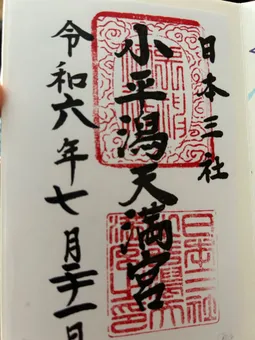 日本三社
小平潟天満宮
令和六年七月二十一日